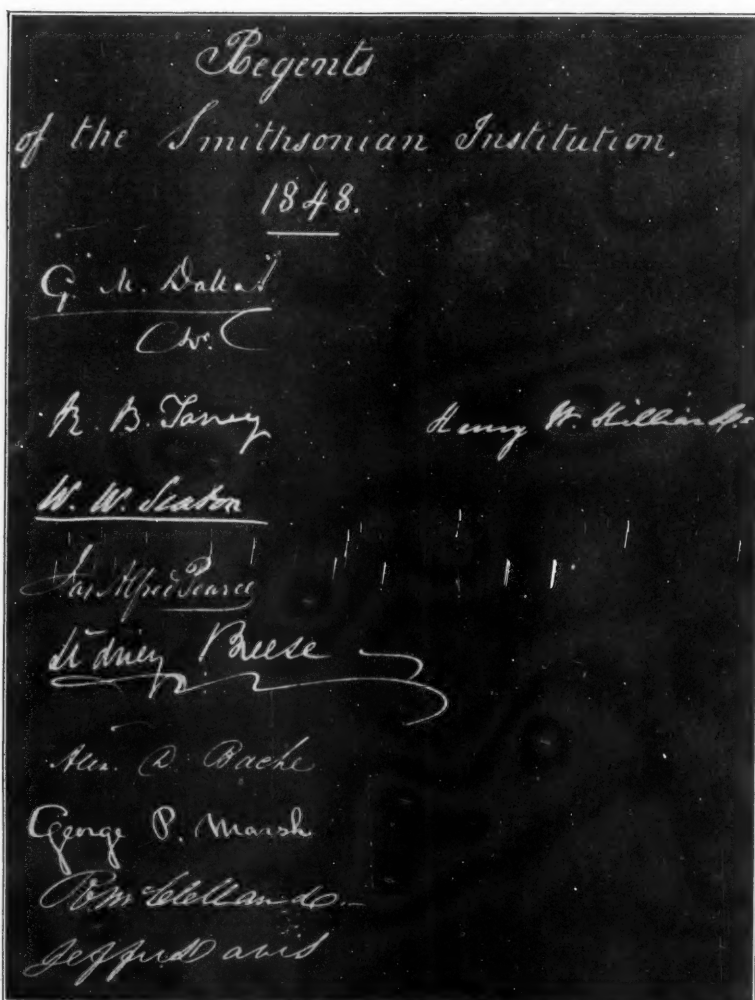 Regents
of the Smithsonian Institution,
1848.
G. M. Dallas
R. B. Taney
Henry W. Hilliard
W. W. Seaton
Jas Alfred Pearce
Sidney Breese
Alex. D. Bache
George P. Marsh
R McClelland
Jeffn Davis